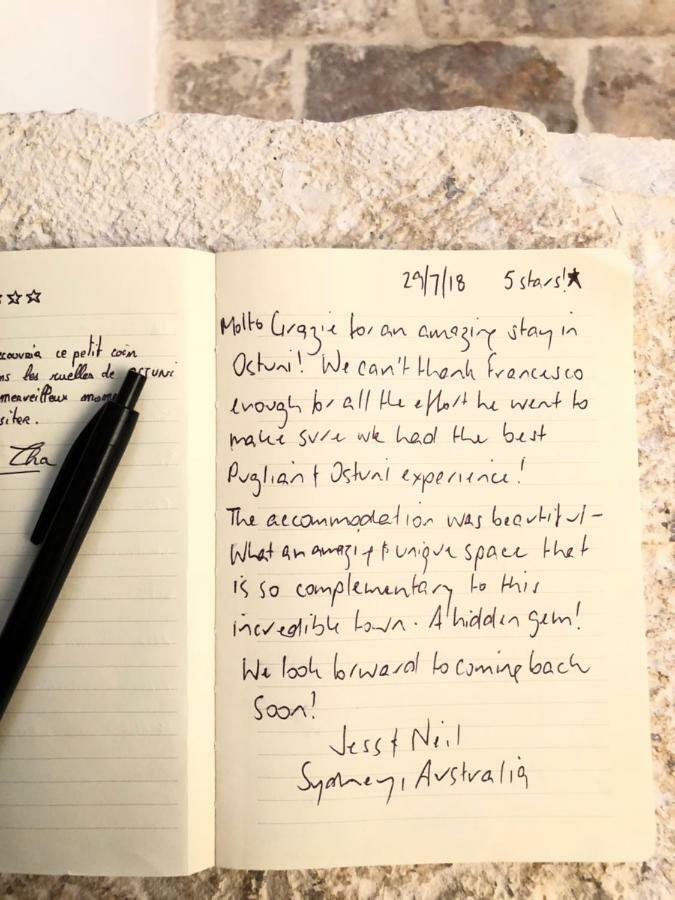 ☆☆☆
ce petit coin
les ruelles de OSTUNI
merveilleux
Tha
29/7/18 5 stars!★
Molto Grazie for an amazing stay in
Ostuni! We can't thank Francesco
enough for all the effort he went to
make sure we had the best
Puglian & Ostuni experience!
The accommodation was beautiful -
What an amazing & unique space that
is so complementary to this
incredible town. A hidden gem!
We look forward to coming back
Soon!
Jess & Neil
Sydney, Australia